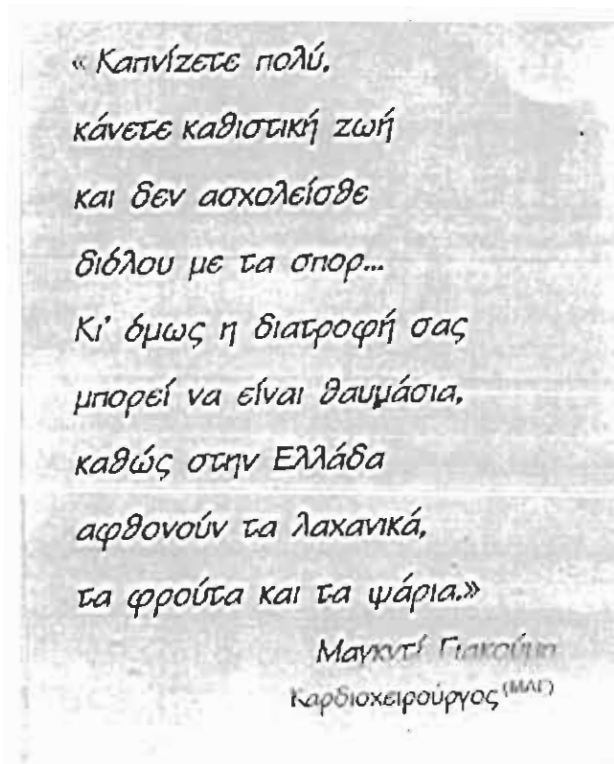 « Καπνίζετε πολύ,
κάνετε καθιστική ζωή
και δεν ασχολείσθε
διόλου με τα σπορ...
Κι' όμως η διατροφή σας
μπορεί να είναι θαυμάσια,
καθώς στην Ελλάδα
αφθονούν τα λαχανικά,
τα φρούτα και τα ψάρια.»
Μαγκντί Γιακούμπ
Καρδιοχειρούργος